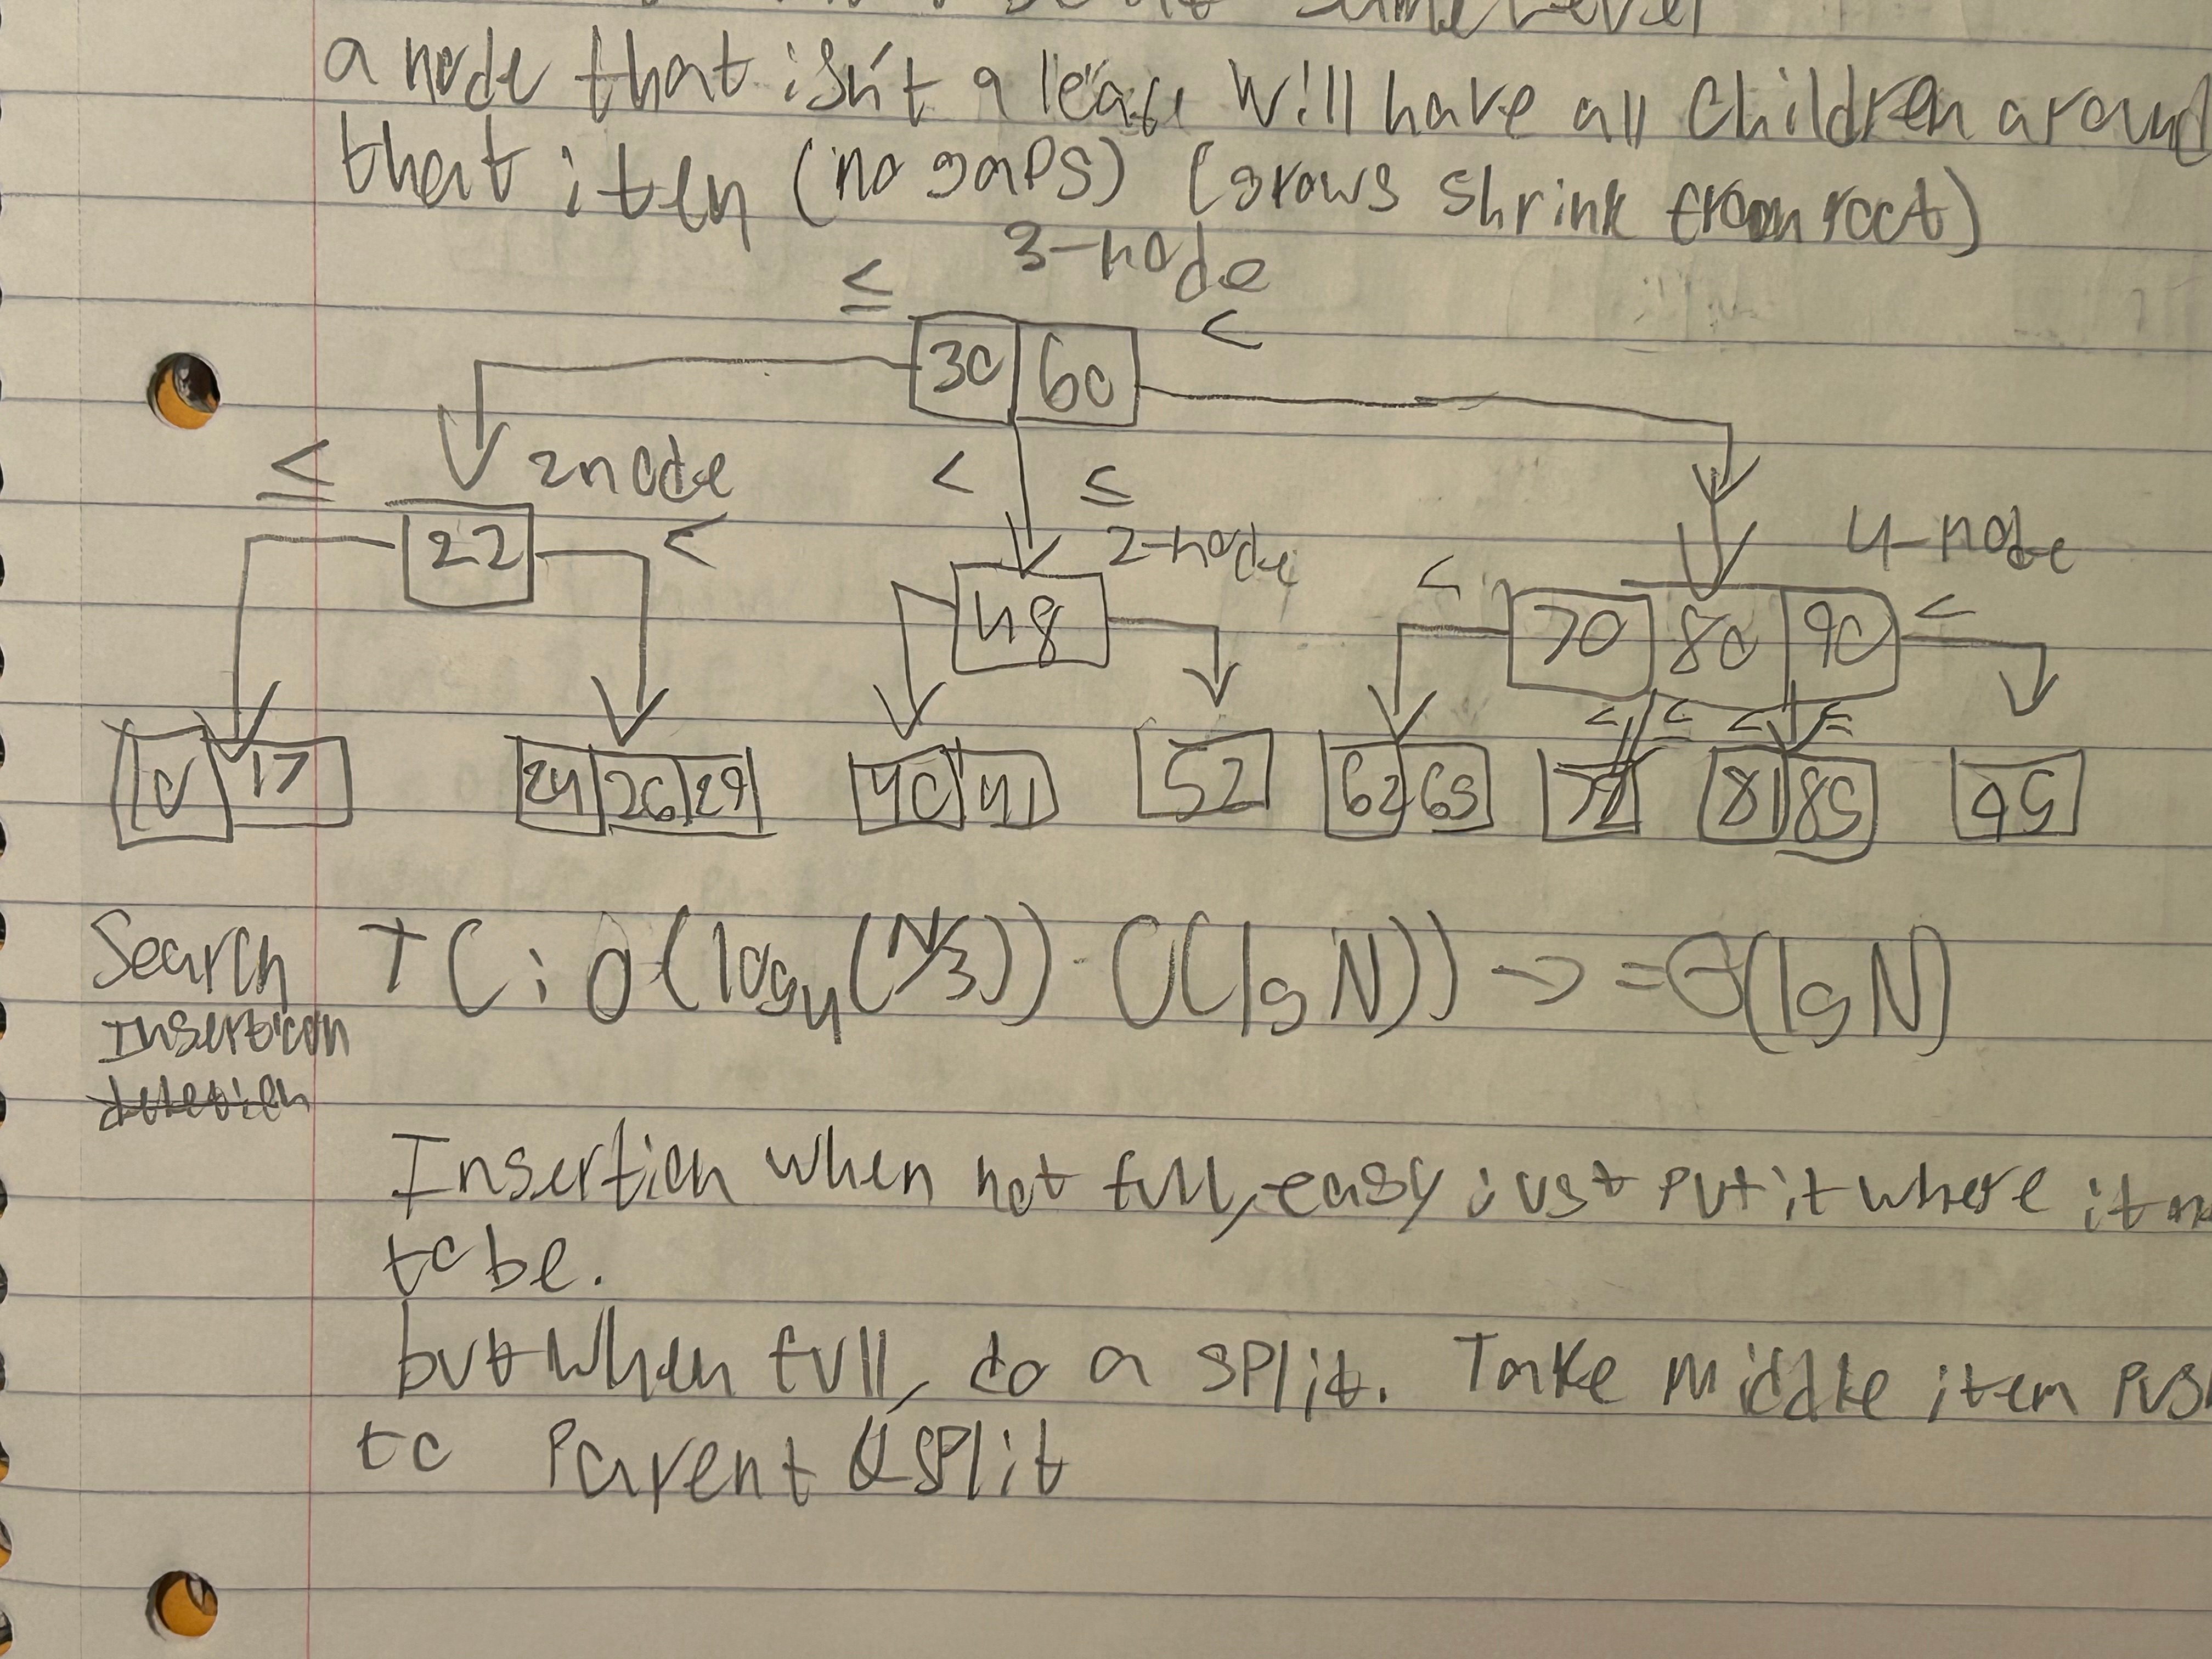 a node that isn't a leaf will have all children around
that item (no gaps) (grows shrink from root)
3-node
≤ <
30 60
≤ 2node < < ≤ 2-node 4-node
22 48 < 70 80 90 <
< ≤ < ≤
10 17 24 26 29 40 41 52 62 65 72 81 85 95
Search TC: O(log₄(N/3)) - O(lg N)) -> = Θ(lg N)
Insertion
deletion
Insertion when not full, easy just put it where it
to be.
but when full, do a split. Take middle item
to Parent & split